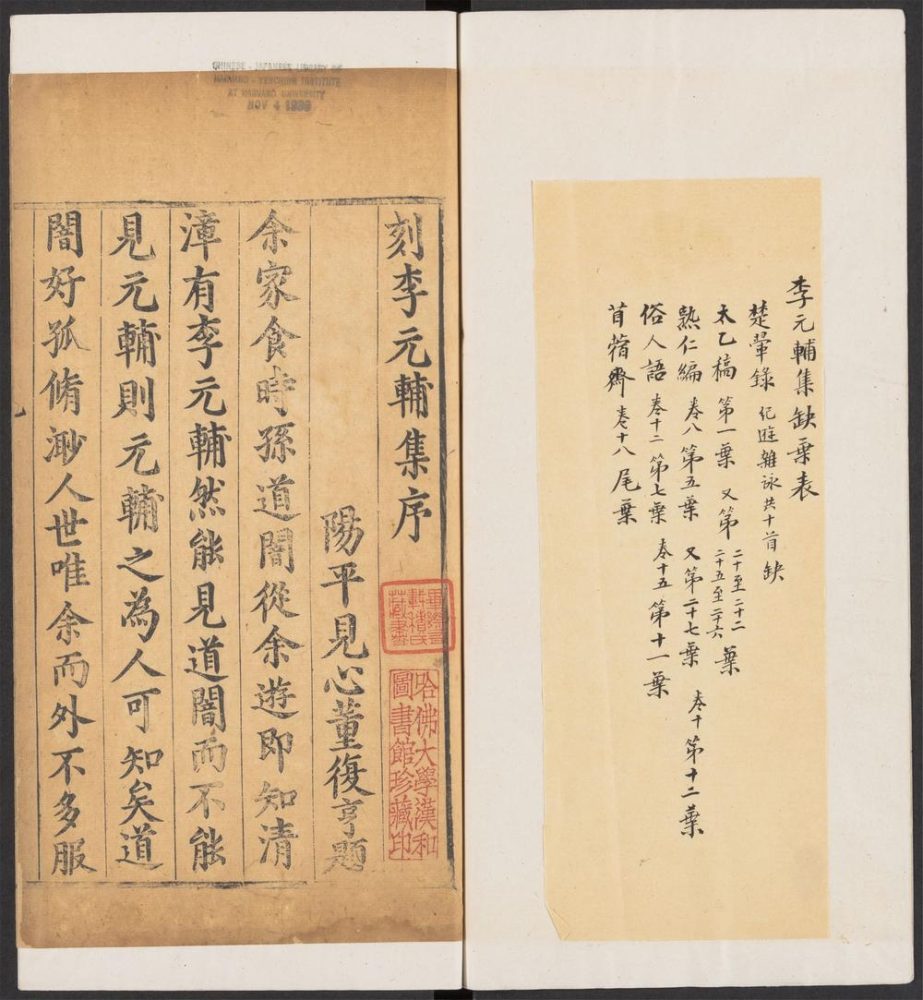 李元輔集缺葉表
楚軰錄 紀遊雜詠共十首缺
太乙稿 第一葉 又第二十至二十二 二十五至二十六葉
熟仁編 卷八第五葉 又第二十七葉 卷十第十二葉
俗人語 卷十二第七葉 卷十五第十一葉
苜蓿齋 卷十八尾葉
CHINESE - JAPANESE LIBRARY OF
HARVARD - YENCHING INSTITUTE
AT HARVARD UNIVERSITY
NOV 4 1938
刻李元輔集序
陽平見心董復亨題
余家食時孫道闇從余遊即知清
漳有李元輔然能見道闇而不能
見元輔則元輔之為人可知矣道
闇好孤脩渺人世唯余而外不多服
哈佛大學漢和
圖書館珍藏印